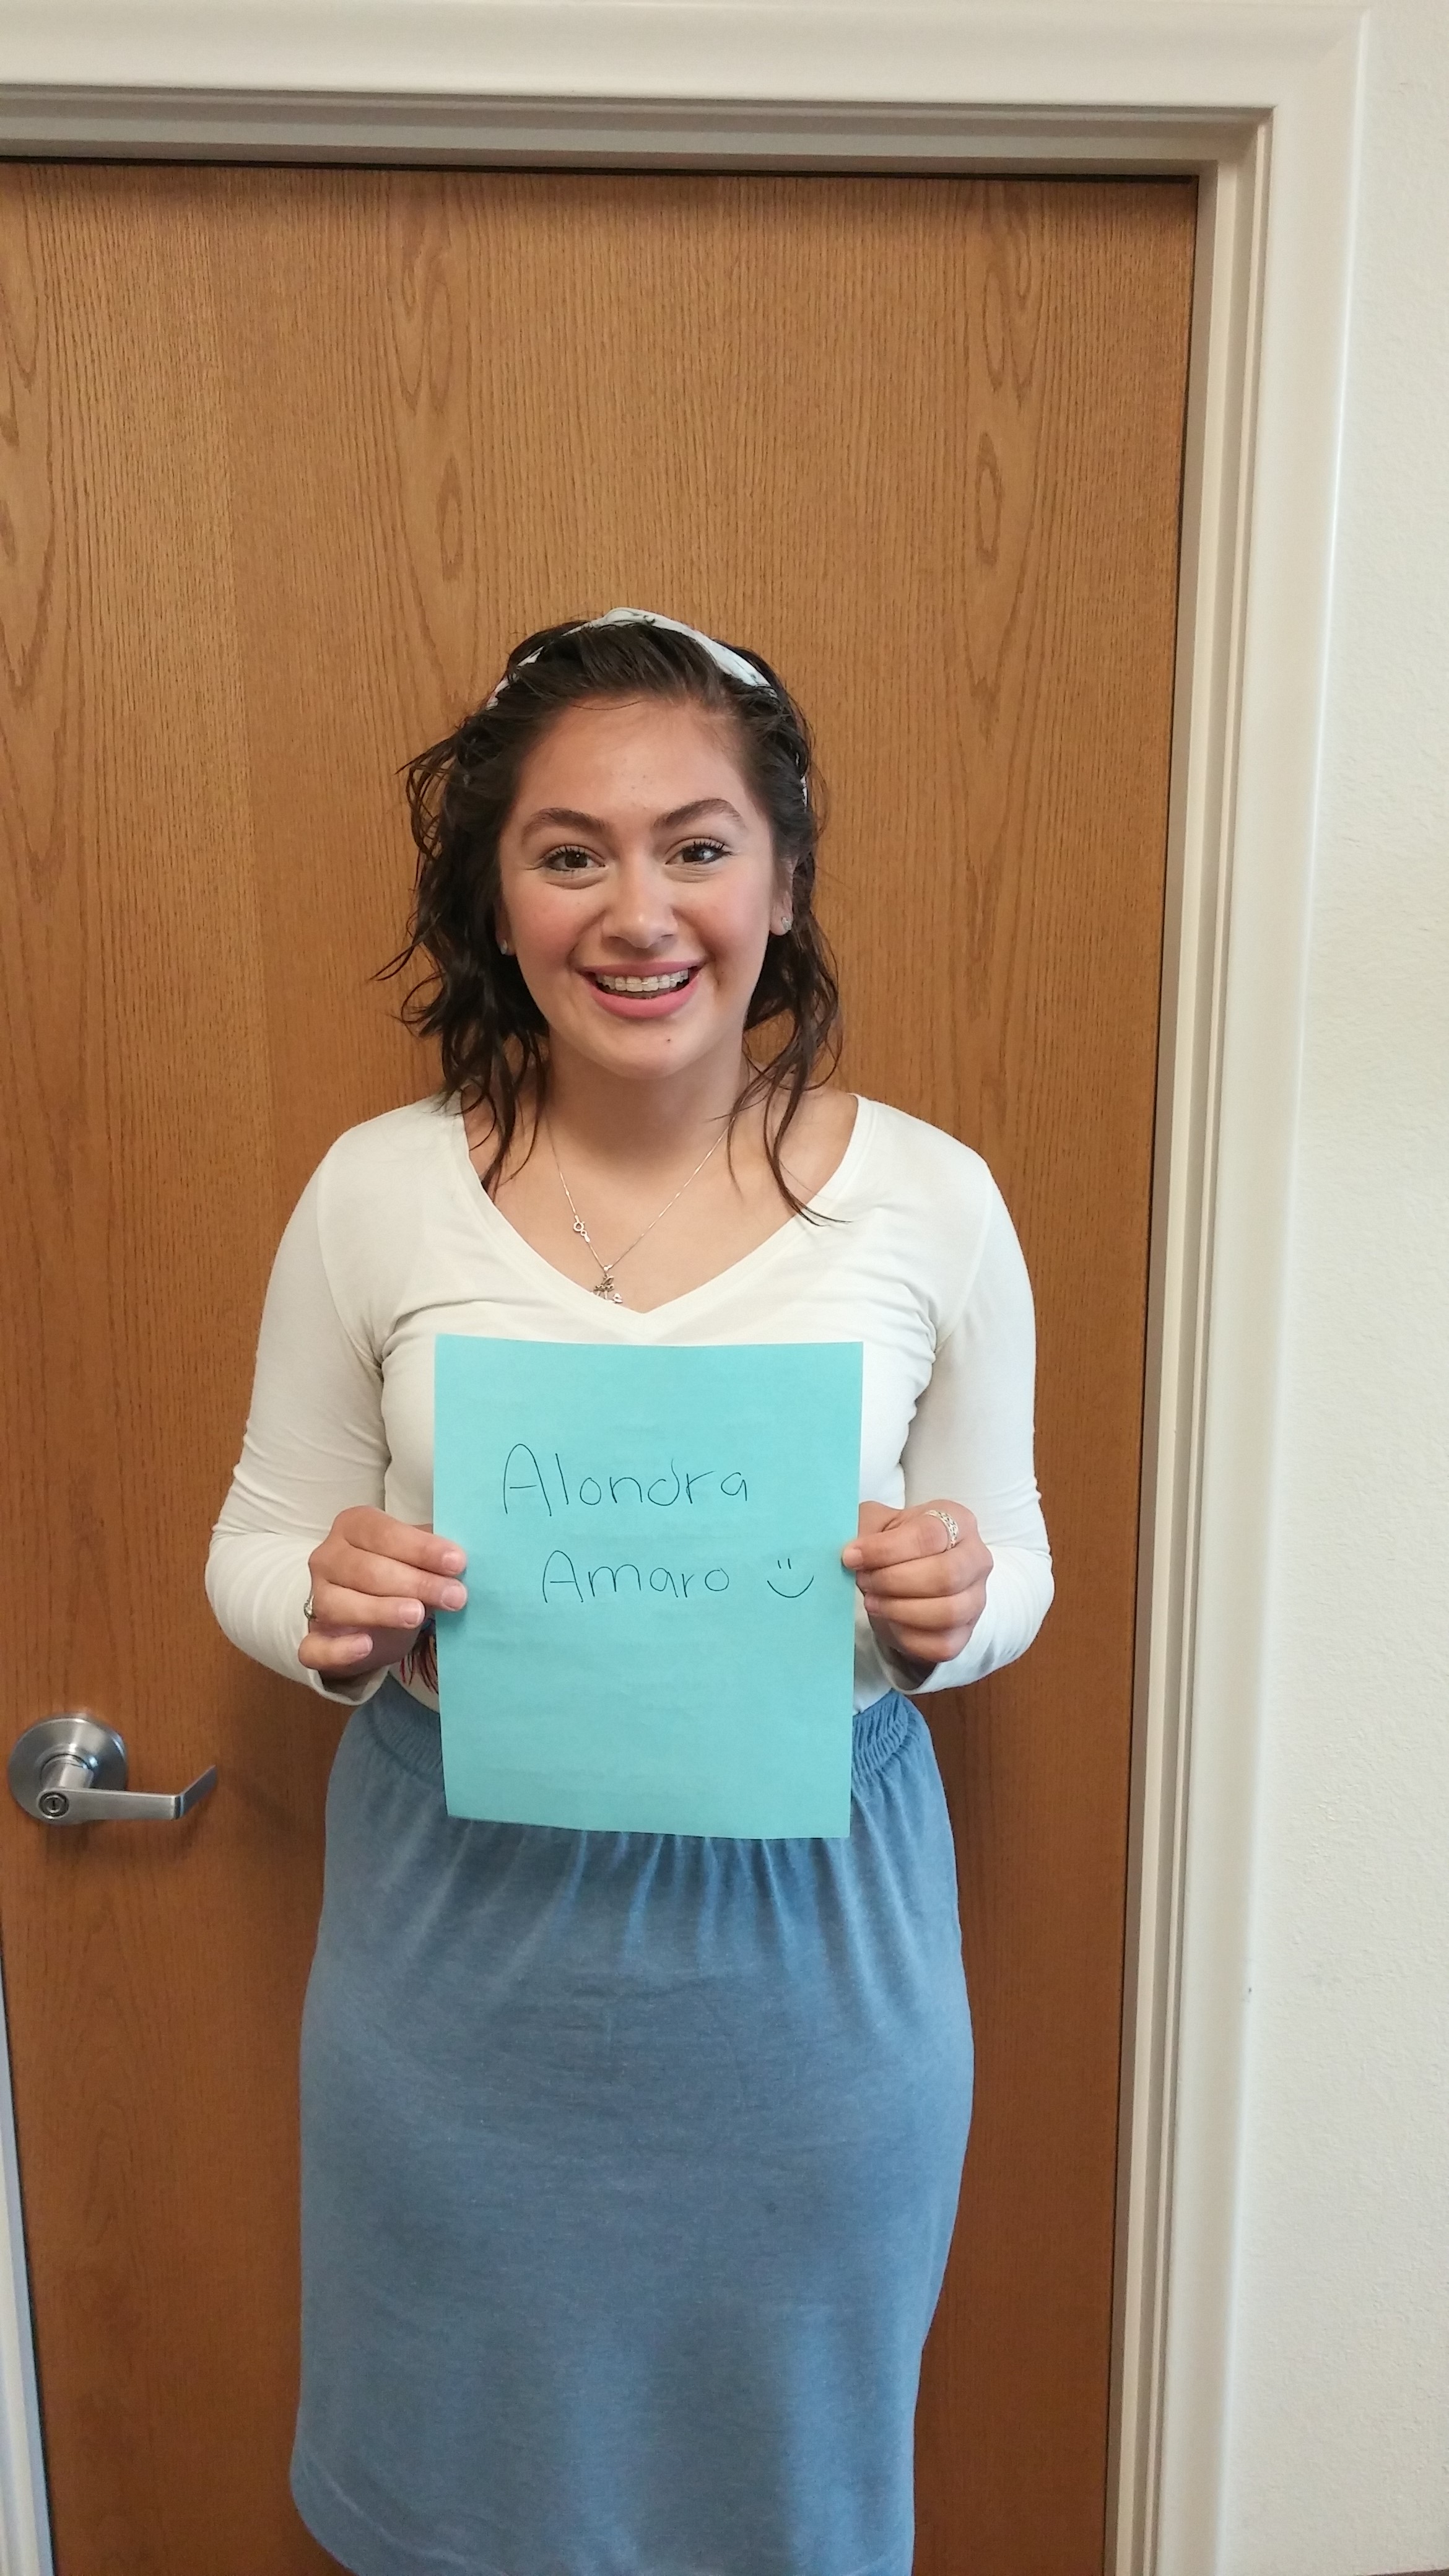 Alondra
Amaro